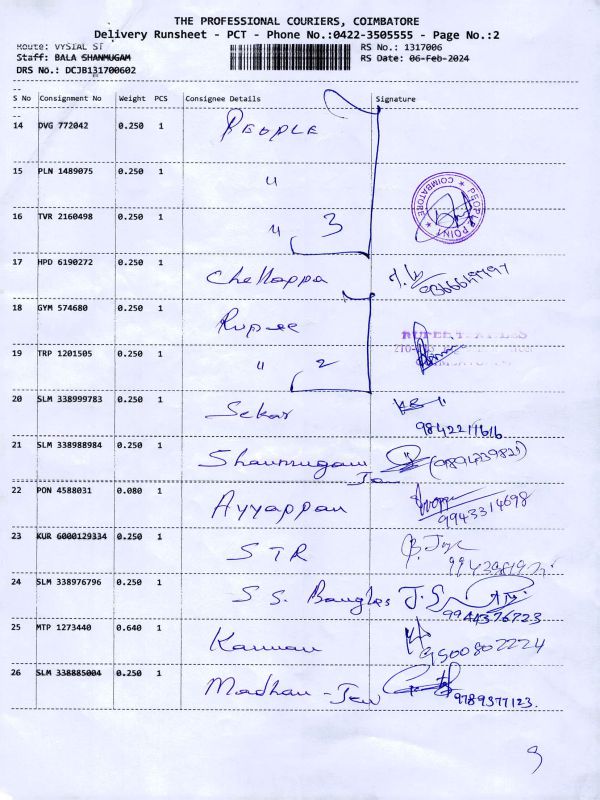 THE PROFESSIONAL COURIERS, COIMBATORE
Delivery Runsheet - PCT - Phone No.:0422-3505555 - Page No.:2
Route: VYSIAL ST RS No.: 1317006
Staff: BALA SHANMUGAM RS Date: 06-Feb-2024
DRS No.: DCJB131700602
S No Consignment No Weight PCS Consignee Details Signature
14 DVG 772042 0.250 1 PEOPLE
15 PLN 1489075 0.250 1 "
16 TVR 2160498 0.250 1 " 3
PEOPLE POINT ★ COIMBATORE ★
17 HPD 6190272 0.250 1 Chellappa
18 GYM 574680 0.250 1 Rupee
19 TRP 1201505 0.250 1 " 2
20 SLM 338999783 0.250 1 Sekar
9842211616
21 SLM 338988984 0.250 1 Shanmugam
22 PON 4588031 0.080 1 Ayyappan
9943314698
23 KUR 6000129334 0.250 1 STR
24 SLM 338976796 0.250 1 S S. Bangles J.S
9944376723
25 MTP 1273440 0.640 1 Kannan
9500802224
26 SLM 338885004 0.250 1 Madhan - Jew
9789377123.
9